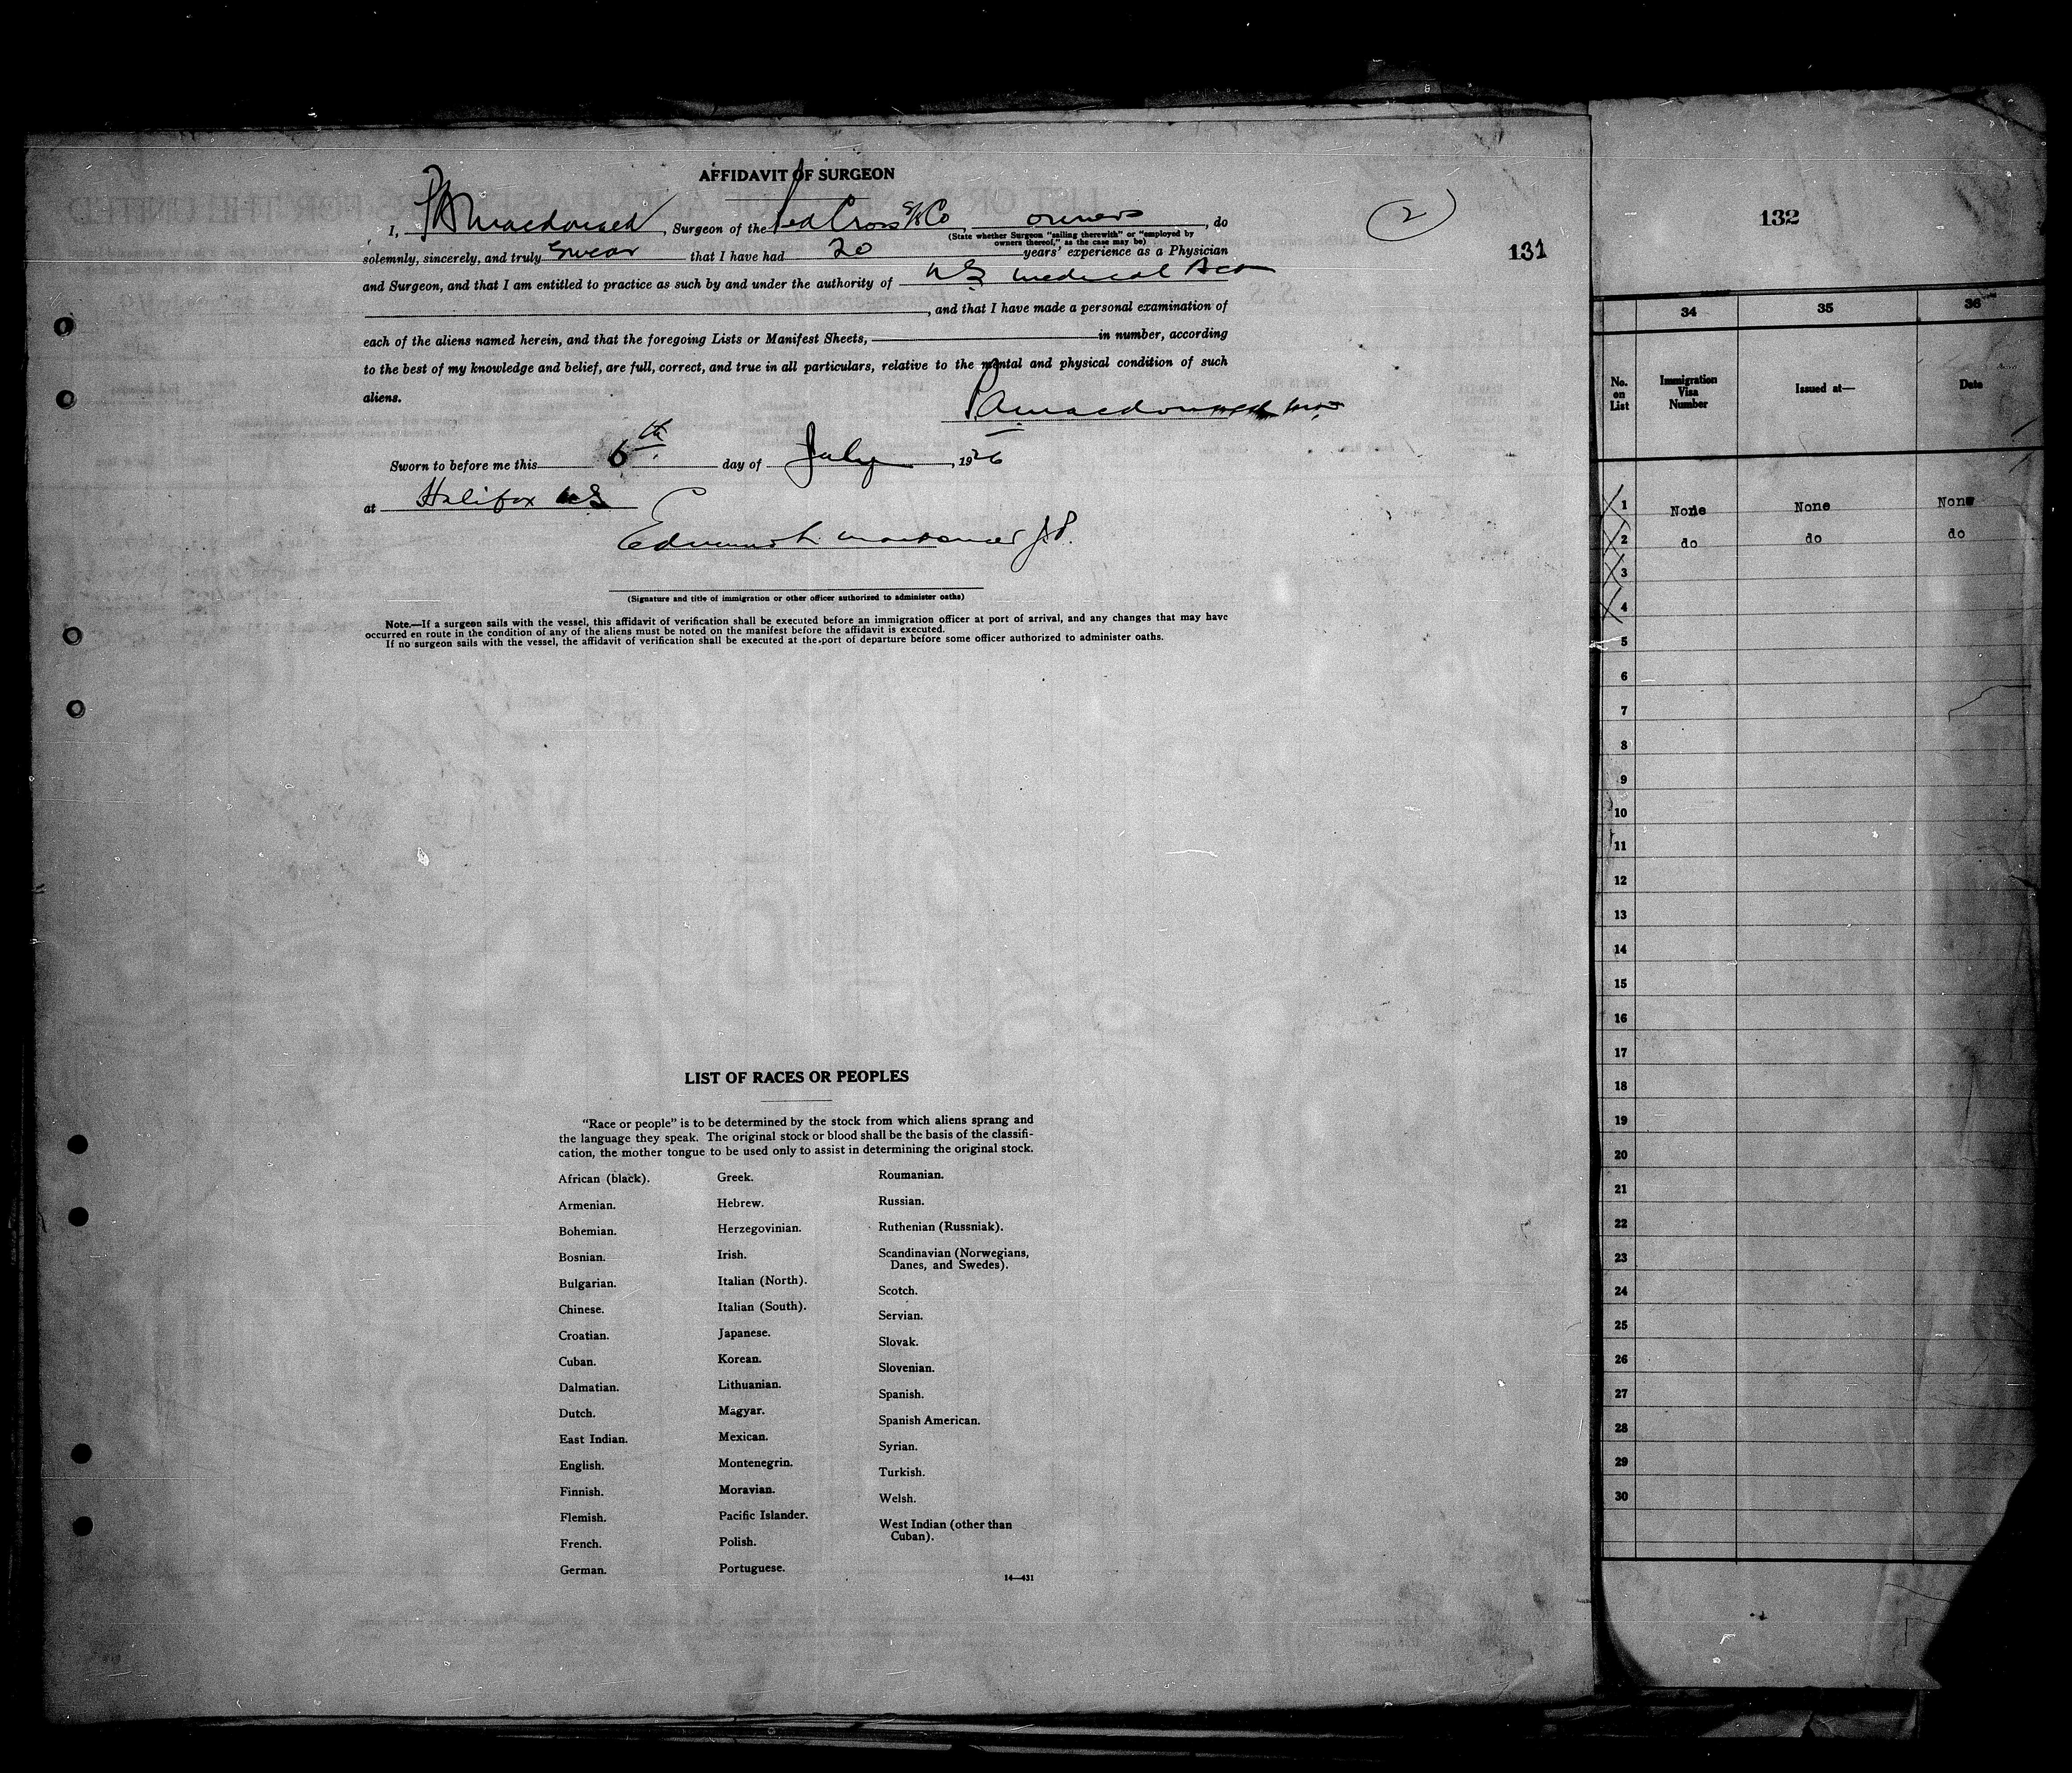 AFFIDAVIT OF SURGEON
I, P A Macdonald, Surgeon of the Red Cross SS Co owners, do
(State whether Surgeon "sailing therewith" or "employed by
owners thereof," as the case may be)
solemnly, sincerely, and truly swear that I have had 20 years' experience as a Physician
and Surgeon, and that I am entitled to practice as such by and under the authority of NS Medical Act
, and that I have made a personal examination of
each of the aliens named herein, and that the foregoing Lists or Manifest Sheets, in number, according
to the best of my knowledge and belief, are full, correct, and true in all particulars, relative to the mental and physical condition of such
aliens.
P A Macdonald
Sworn to before me this 6th day of July, 1926
at Halifax NS
J.P.
(Signature and title of immigration or other officer authorized to administer oaths)
Note.—If a surgeon sails with the vessel, this affidavit of verification shall be executed before an immigration officer at port of arrival, and any changes that may have
occurred en route in the condition of any of the aliens must be noted on the manifest before the affidavit is executed.
If no surgeon sails with the vessel, the affidavit of verification shall be executed at the port of departure before some officer authorized to administer oaths.
2
131
LIST OF RACES OR PEOPLES
"Race or people" is to be determined by the stock from which aliens sprang and
the language they speak. The original stock or blood shall be the basis of the classifi-
cation, the mother tongue to be used only to assist in determining the original stock.
African (black).
Armenian.
Bohemian.
Bosnian.
Bulgarian.
Chinese.
Croatian.
Cuban.
Dalmatian.
Dutch.
East Indian.
English.
Finnish.
Flemish.
French.
German.
Greek.
Hebrew.
Herzegovinian.
Irish.
Italian (North).
Italian (South).
Japanese.
Korean.
Lithuanian.
Magyar.
Mexican.
Montenegrin.
Moravian.
Pacific Islander.
Polish.
Portuguese.
Roumanian.
Russian.
Ruthenian (Russniak).
Scandinavian (Norwegians,
Danes, and Swedes).
Scotch.
Servian.
Slovak.
Slovenian.
Spanish.
Spanish American.
Syrian.
Turkish.
Welsh.
West Indian (other than
Cuban).
14—431
132
34 35 36
No. on List Immigration Visa Number Issued at— Date
1 None None None
2 do do do
3
4
5
6
7
8
9
10
11
12
13
14
15
16
17
18
19
20
21
22
23
24
25
26
27
28
29
30